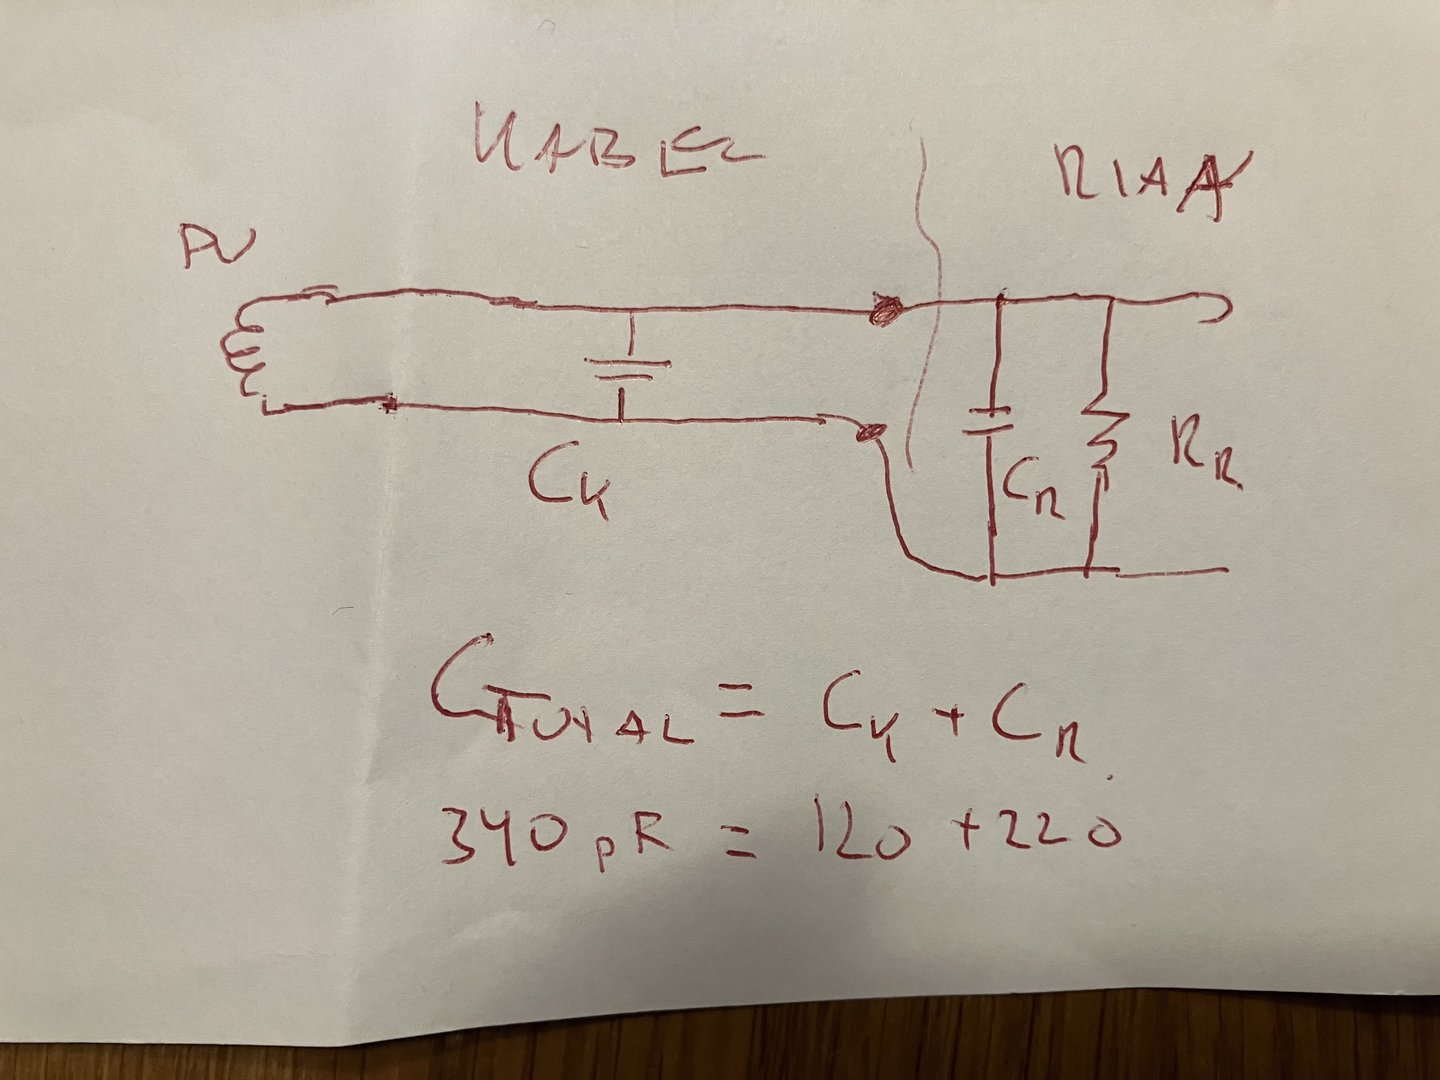 KABEL
RIAA
PU
CK
CR
RR
CTOTAL = CK + CR
340 pF = 120 + 220